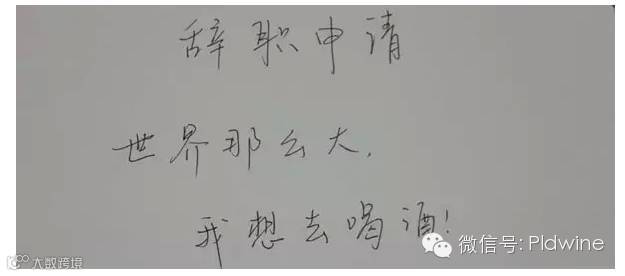 辞职申请
世界那么大.
我想去喝酒!
微信号: Pldwine
大数跨境